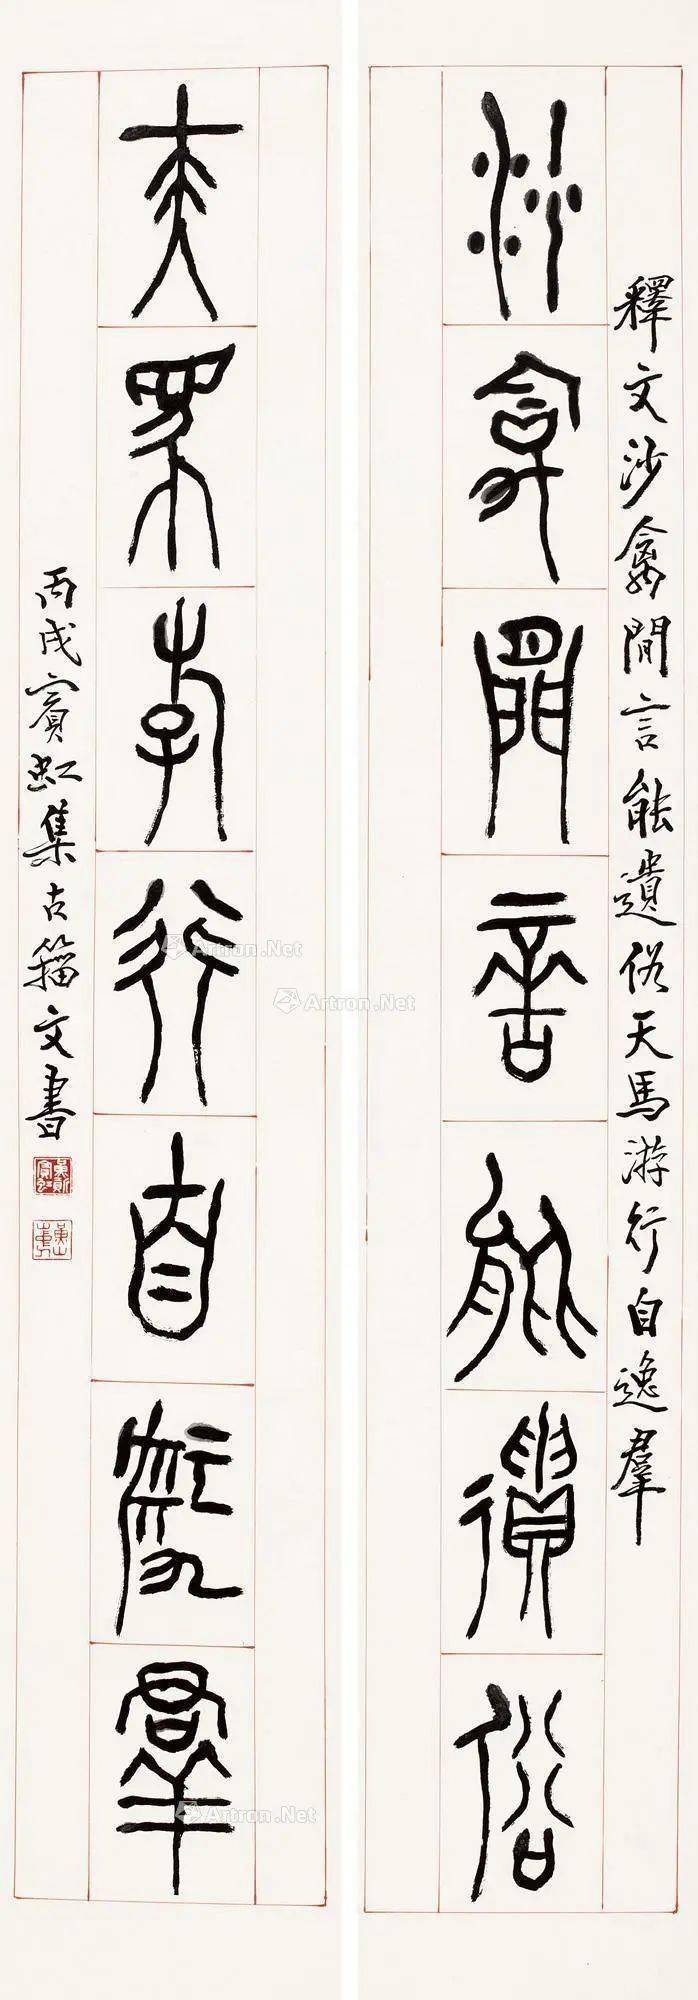 釋文沙禽閒言能遺俗天馬游行自逸羣
沙禽閒言能遺俗
天馬游行自逸羣
丙戌賓虹集古籀文書
Artron.Net
Artron.Net
Artron.Net